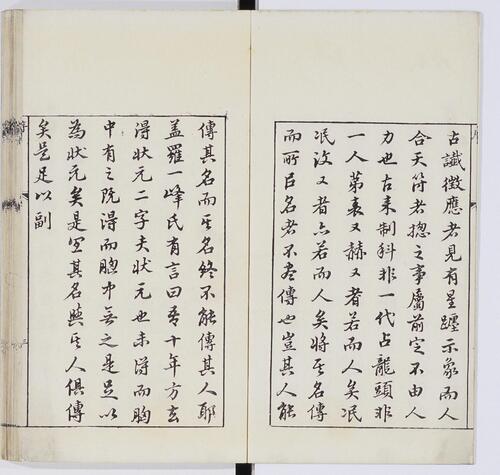 古讖徵應者見有星躔示象而人
合天符者揔之事屬前定不由人
力也古来制科非一代占龍頭非
一人第表又赫又者若而人矣泯
泯汶又者亦若而人矣將其名傳
而所以名者不盡傳也豈其人能
傳其名而其名終不能傳其人耶
盖羅一峰氏有言曰吾十年方去
得状元二字夫状元也未得而胸
中有之既得而胸中無之是足以
為状元矣是宜其名與其人俱傳
矣是足以副